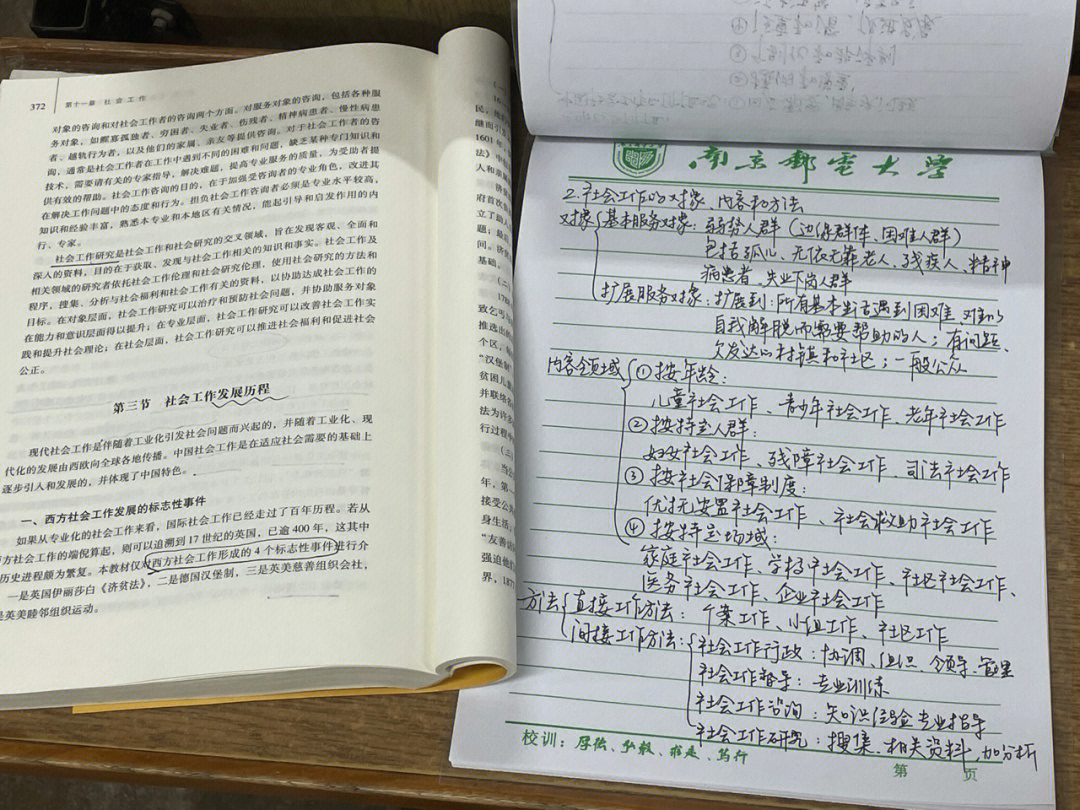 372
第十一章 社会工作
对象的咨询和对社会工作者的咨询两个方面。对服务对象的咨询，包括各种服
务对象，如鳏寡孤独者、穷困者、失业者、伤残者、精神病患者、慢性病患
者、越轨行为者，以及他们的家属、亲友等提供咨询。对于社会工作者的咨
询，通常是社会工作者在工作中遇到不同的困难和问题，缺乏某种专门知识和
技术，需要请有关的专家指导，解决难题，提高专业服务的质量，为受助者提
供有效的帮助。社会工作咨询的目的，在于加强受咨询者的专业角色，改进其
在解决工作问题中的态度和行为。担负社会工作咨询者必须是专业水平较高，
知识和经验丰富，熟悉本专业和本地区有关情况，能起引导和启发作用的内
行、专家。
社会工作研究是社会工作和社会研究的交叉领域，旨在发现客观、全面和
深入的资料，目的在于获取、发现与社会工作相关的知识和事实。社会工作及
相关领域的研究者依托社会工作伦理和社会研究伦理，使用社会研究的方法和
程序，搜集、分析与社会福利和社会工作有关的资料，以协助达成社会工作的
目标。在对象层面，社会工作研究可以治疗和预防社会问题，并协助服务对象
在能力和意识层面得以提升；在专业层面，社会工作研究可以改善社会工作实
践和提升社会理论；在社会层面，社会工作研究可以推进社会福利和促进社会
公正。
第三节 社会工作发展历程
现代社会工作是伴随着工业化引发社会问题而兴起的，并随着工业化、现
代化的发展由西欧向全球各地传播。中国社会工作是在适应社会需要的基础上
逐步引入和发展的，并体现了中国特色。
一、西方社会工作发展的标志性事件
如果从专业化的社会工作来看，国际社会工作已经走过了百年历程。若从
西方社会工作的端倪算起，则可以追溯到 17 世纪的英国，已逾 400 年，这其中
历史进程颇为繁复。本教材仅对西方社会工作形成的 4 个标志性事件进行介
一是英国伊丽莎白《济贫法》，二是德国汉堡制，三是英美慈善组织会社，
是英美睦邻组织运动。
南京邮电大学
2.社会工作的对象、内容和方法
对象 基本服务对象：弱势人群（边缘群体、困难人群）
包括孤儿、无依无靠老人、残疾人、精神
病患者、失业下岗人群
扩展服务对象：扩展到：所有基本生活遇到困难、难以
自我解脱而需要帮助的人；有问题、
欠发达的村镇和社区；一般公众
内容领域 ①按年龄：
儿童社会工作、青少年社会工作、老年社会工作
②按特定人群：
妇女社会工作、残障社会工作、司法社会工作
③按社会保障制度：
优抚安置社会工作、社会救助社会工作
④按特定场域：
家庭社会工作、学校社会工作、社区社会工作、
医务社会工作、企业社会工作
方法 直接工作方法：个案工作、小组工作、社区工作
间接工作方法：社会工作行政：协调、组织、领导、管理
社会工作督导：专业训练
社会工作咨询：知识经验专业指导
社会工作研究：搜集、相关资料，加分析
校训：厚德、弘毅、求是、笃行
第 页